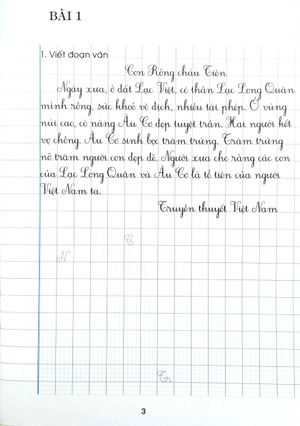 BÀI 1
1. Viết đoạn văn
Con Rồng cháu Tiên
Ngày xưa, ở đất Lạc Việt, có thần Lạc Long Quân
mình rồng, sức khoẻ vô địch, nhiều tài phép. Ở vùng
núi cao, có nàng Âu Cơ đẹp tuyệt trần. Hai người kết
vợ chồng. Âu Cơ sinh bọc trăm trứng. Trăm trứng
nở trăm người con đẹp đẽ. Người xưa cho rằng các con
của Lạc Long Quân và Âu Cơ là tổ tiên của người
Việt Nam ta.
Truyền thuyết Việt Nam
C
N
Tr
3